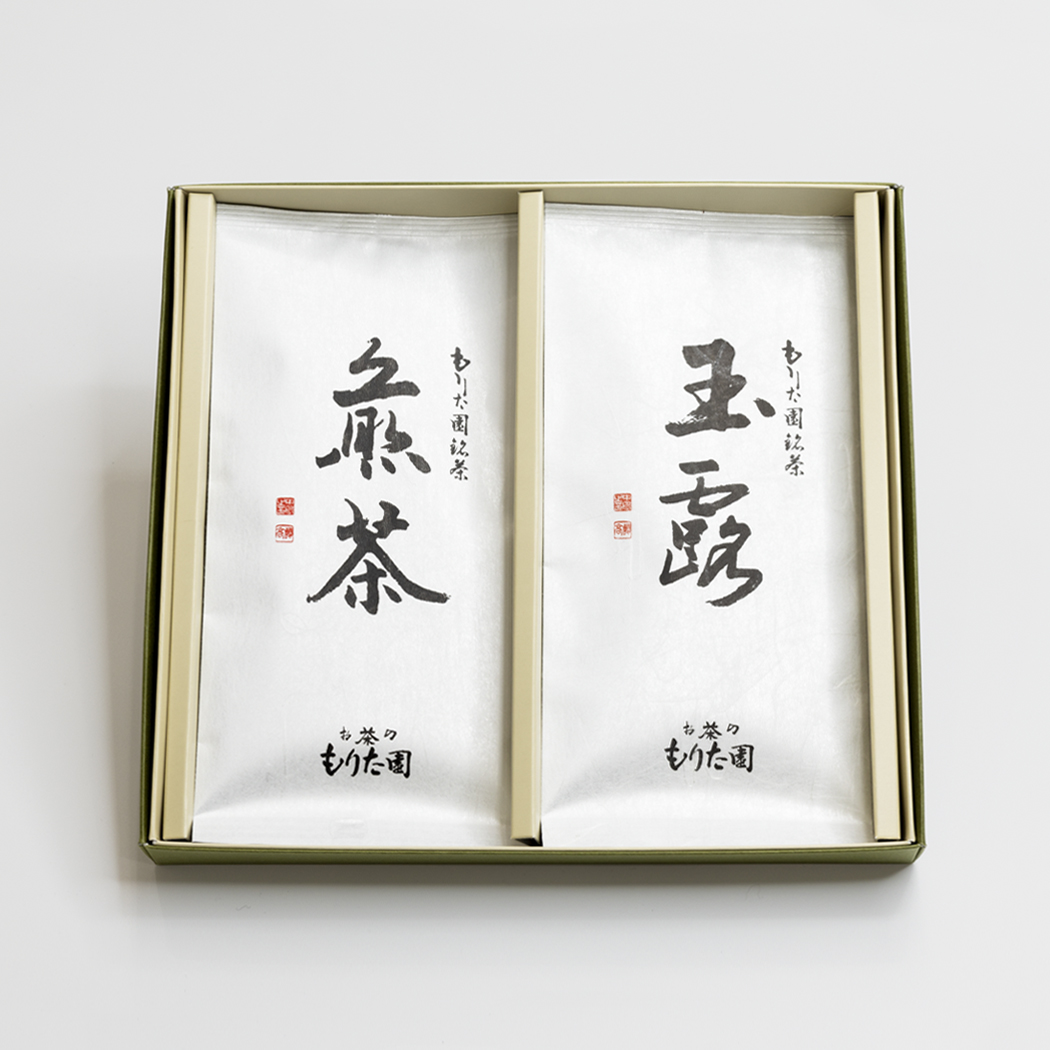 もりた園銘茶
煎茶
お茶の
もりた園
もりた園銘茶
玉露
お茶の
もりた園